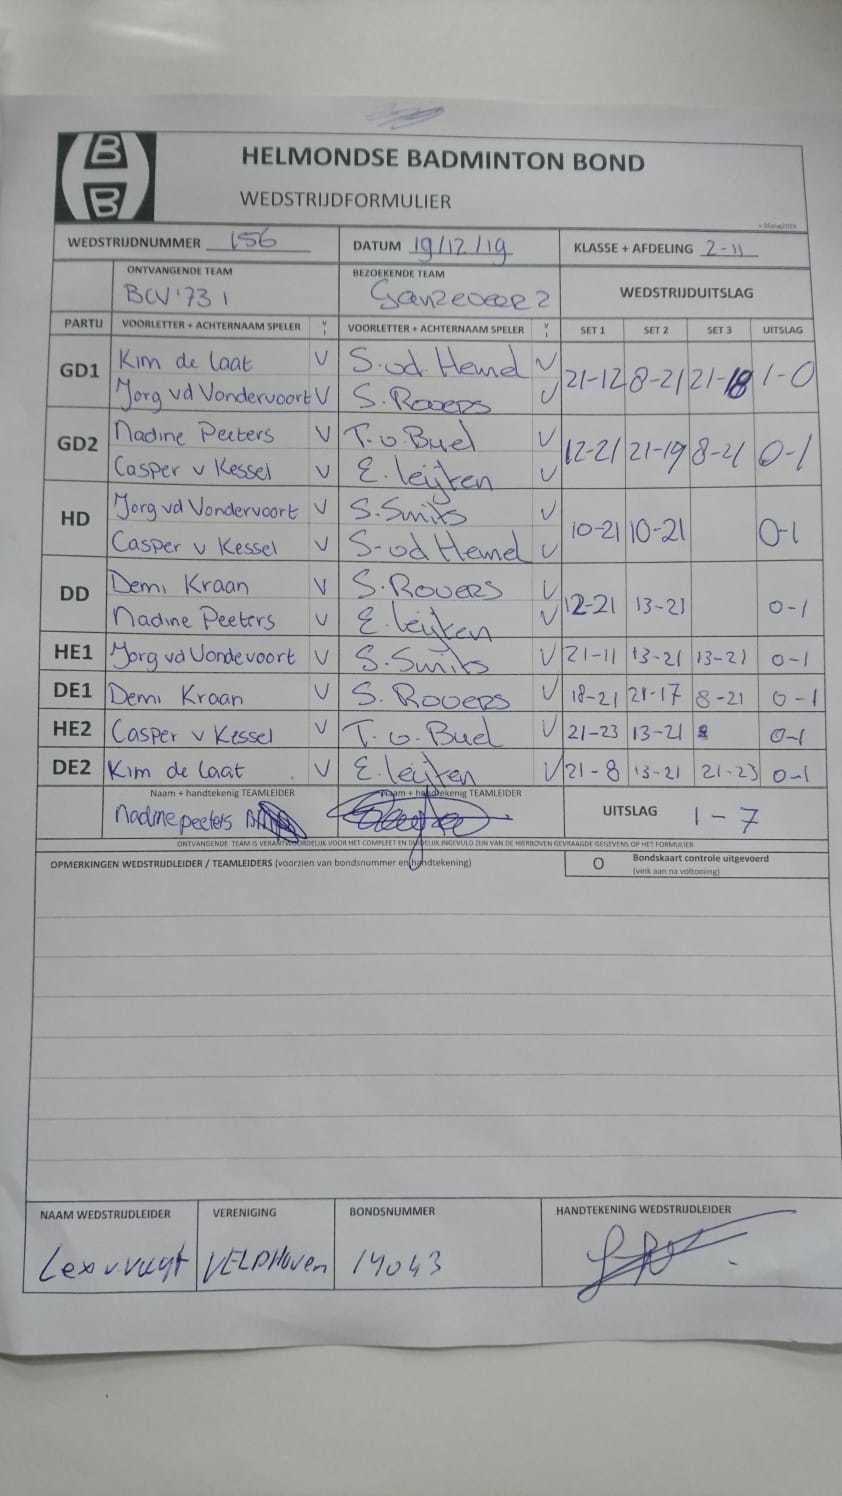 B
B
HELMONDSE BADMINTON BOND
WEDSTRIJDFORMULIER
WEDSTRIJDNUMMER 156 DATUM 19/12/19 KLASSE + AFDELING 2-11
ONTVANGENDE TEAM BEZOEKENDE TEAM WEDSTRIJDUITSLAG
BCV'73 1 Ganzeveer 2
PARTIJ VOORLETTER + ACHTERNAAM SPELER V VOORLETTER + ACHTERNAAM SPELER V SET 1 SET 2 SET 3 UITSLAG
GD1 Kim de Laat V S. vd Hemel V 21-12 8-21 21-18 1-0
Jorg vd Vondervoort V S. Rovers V
GD2 Nadine Peeters V T. v. Buel V 12-21 21-19 8-21 0-1
Casper v Kessel V E. Leijten V
HD Jorg vd Vondervoort V S. Smits V 10-21 10-21 0-1
Casper v Kessel V S. vd Hemel V
DD Demi Kraan V S. Rovers V 12-21 13-21 0-1
Nadine Peeters V E. Leijten V
HE1 Jorg vd Vondevoort V S. Smits V 21-11 13-21 13-21 0-1
DE1 Demi Kraan V S. Rovers V 18-21 21-17 8-21 0-1
HE2 Casper v Kessel V T. v. Buel V 21-23 13-21 0-1
DE2 Kim de Laat V E. Leijten V 21-8 13-21 21-23 0-1
Naam + handtekenig TEAMLEIDER Naam + handtekenig TEAMLEIDER UITSLAG 1-7
Nadine peeters
ONTVANGENDE TEAM IS VERANTWOORDELIJK VOOR HET COMPLEET EN DUIDELIJK INGEVULD ZIJN VAN DE HIERBOVEN GEVRAAGDE GEGEVENS OP HET FORMULIER
OPMERKINGEN WEDSTRIJDLEIDER / TEAMLEIDERS (voorzien van bondsnummer en handtekening) O Bondskaart controle uitgevoerd
(vink aan na voltooiing)
NAAM WEDSTRIJDLEIDER VERENIGING BONDSNUMMER HANDTEKENING WEDSTRIJDLEIDER
Lex v VELDHOVEN 14043